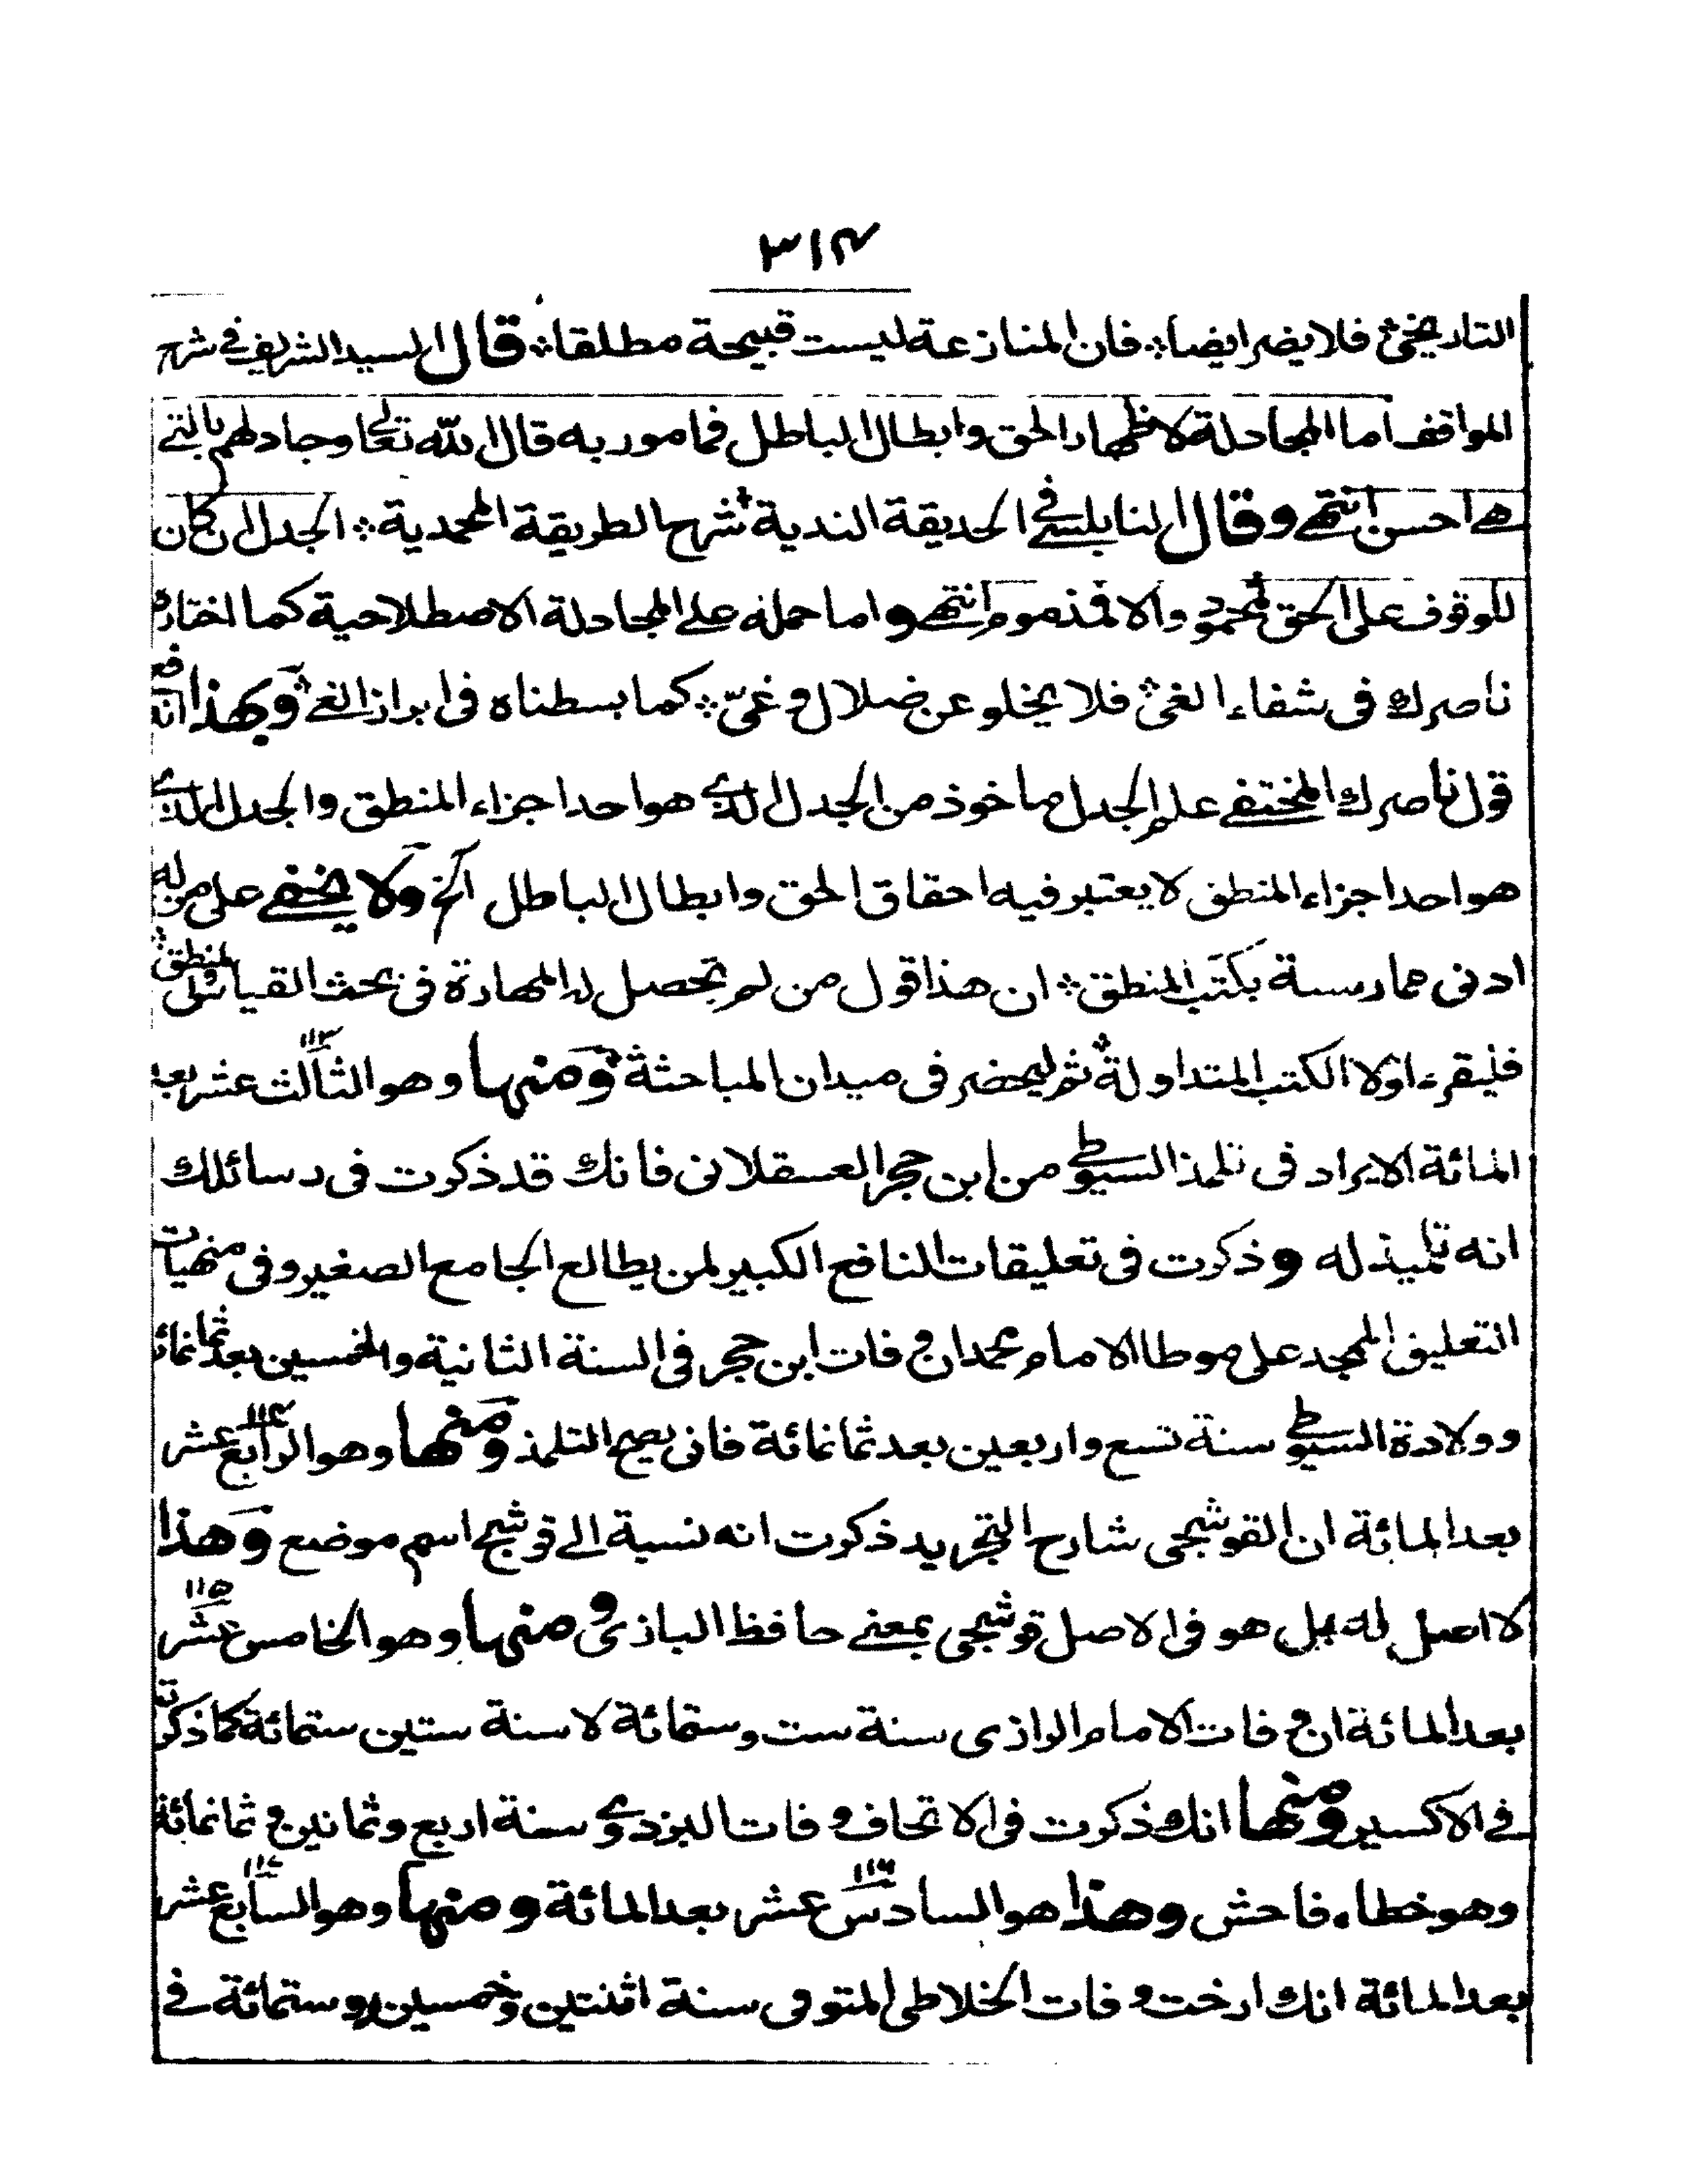 ٣١٤
التاريخي فلا يضر ايضا فان المنازعة ليست قبيحة مطلقا قال السيد الشريف في شرح
المواقف اما المجادلة لاظهار الحق وابطال الباطل فمامور به قال الله تعالى وجادلهم بالتي
هي احسن انتهى وقال النابلسي في الحديقة الندية شرح الطريقة المحمدية الجدل ان كان
للوقوف على الحق فمحمود والا فمذموم انتهى واما حمله على المجادلة الاصطلاحية كما اختاره
ناصرك في شفاء الغى فلا يخلو عن ضلال وغىّ كما بسطناه في ابراز الغي وبهذا اندفع
قول ناصرك المختفي علم الجدل ماخوذ من الجدل الذي هو احد اجزاء المنطق والجدل الذي
هو احد اجزاء المنطق لا يعتبر فيه احقاق الحق وابطال الباطل الخ ولا يخفى على من له
ادنى ممارسة بكتب المنطق ان هذا قول من لم تحصل له المهارة في بحث القياس المنطقي
فليقرء اولا الكتب المتداولة ثم ليحضر في ميدان المباحثة ومنها وهو الثالث عشر بعد ١١٣
المائة الايراد في تلمذ السيوطي من ابن حجر العسقلانى فانك قد ذكرت في رسائلك
انه تلميذ له وذكرت في تعليقات النافع الكبير لمن يطالع الجامع الصغير وفى منهيات
التعليق الممجد على موطا الامام محمد ان وفات ابن حجر في السنة الثانية والخمسين بعد ثمانمائة
وولادة السيوطي سنة تسع واربعين بعد ثمانمائة فانى يصح التلمذ ومنها وهو الرابع عشر ١١٤
بعد المائة ان القوشجى شارح التجريد ذكرت انه نسبة الى قوشج اسم موضع وهذا
لا اصل له بل هو في الاصل قوشجى بمعنى حافظ البازي ومنها وهو الخامس عشر ١١٥
بعد المائة ان وفات الامام الرازى سنة ست وستمائة لا سنة ستين ستمائة كما ذكرته
في الاكسير ومنها انك ذكرت في الاتحاف وفات البزدوي سنة اربع وثمانين وثمانمائة
وهو خطاء فاحش وهذا هو السادس عشر بعد المائة ومنها وهو السابع عشر ١١٦ ١١٧
بعد المائة انك ارخت وفات الخلاطى المتوفى سنة اثنتين وخمسين وستمائة في